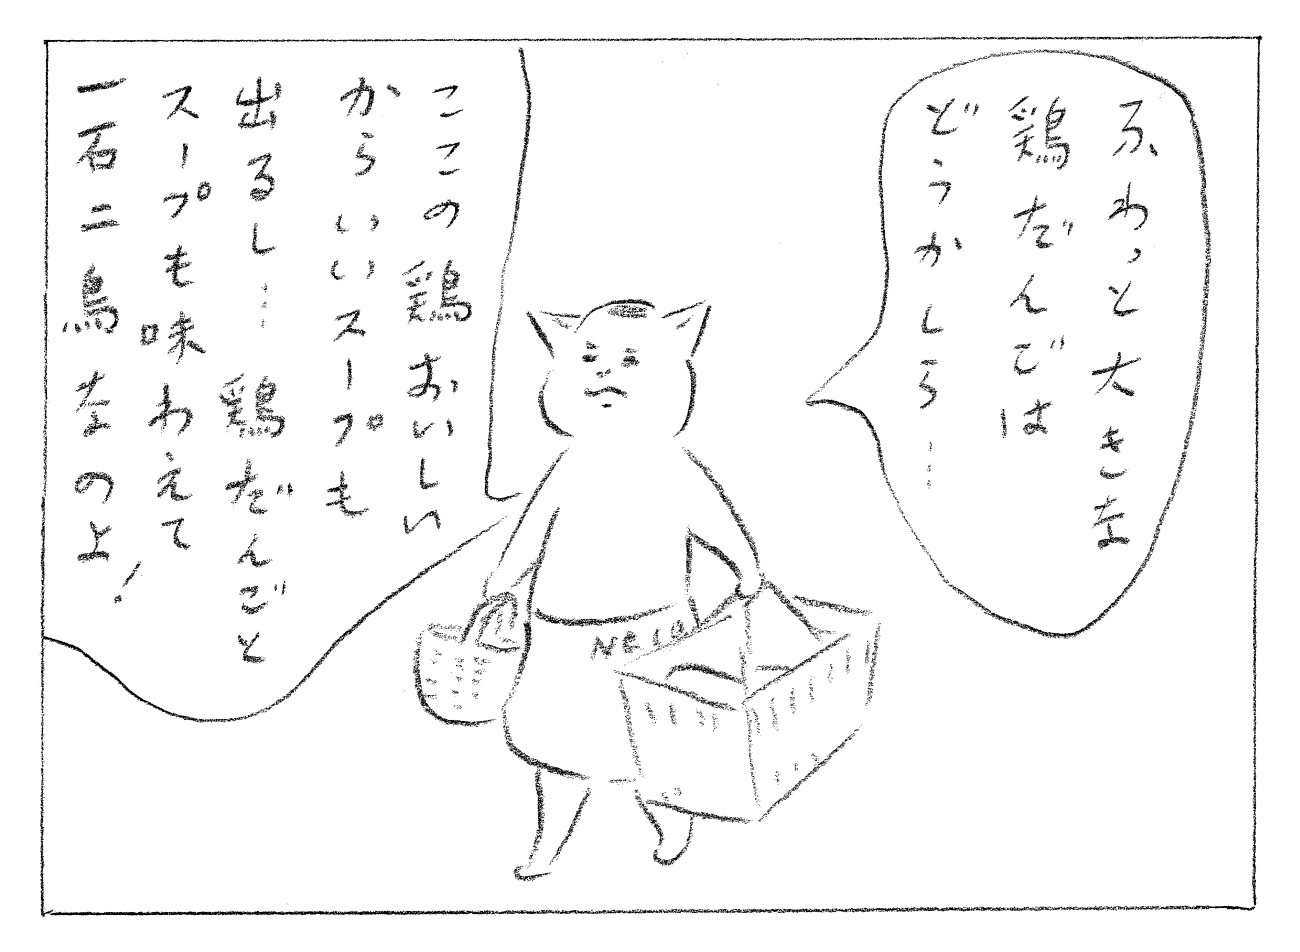 ふわっと大きな
鶏だんごは
どうかしら…
ここの鶏おいしい
からいいスープも
出るし…鶏だんごと
スープも味わえて
一石二鳥なのよ!